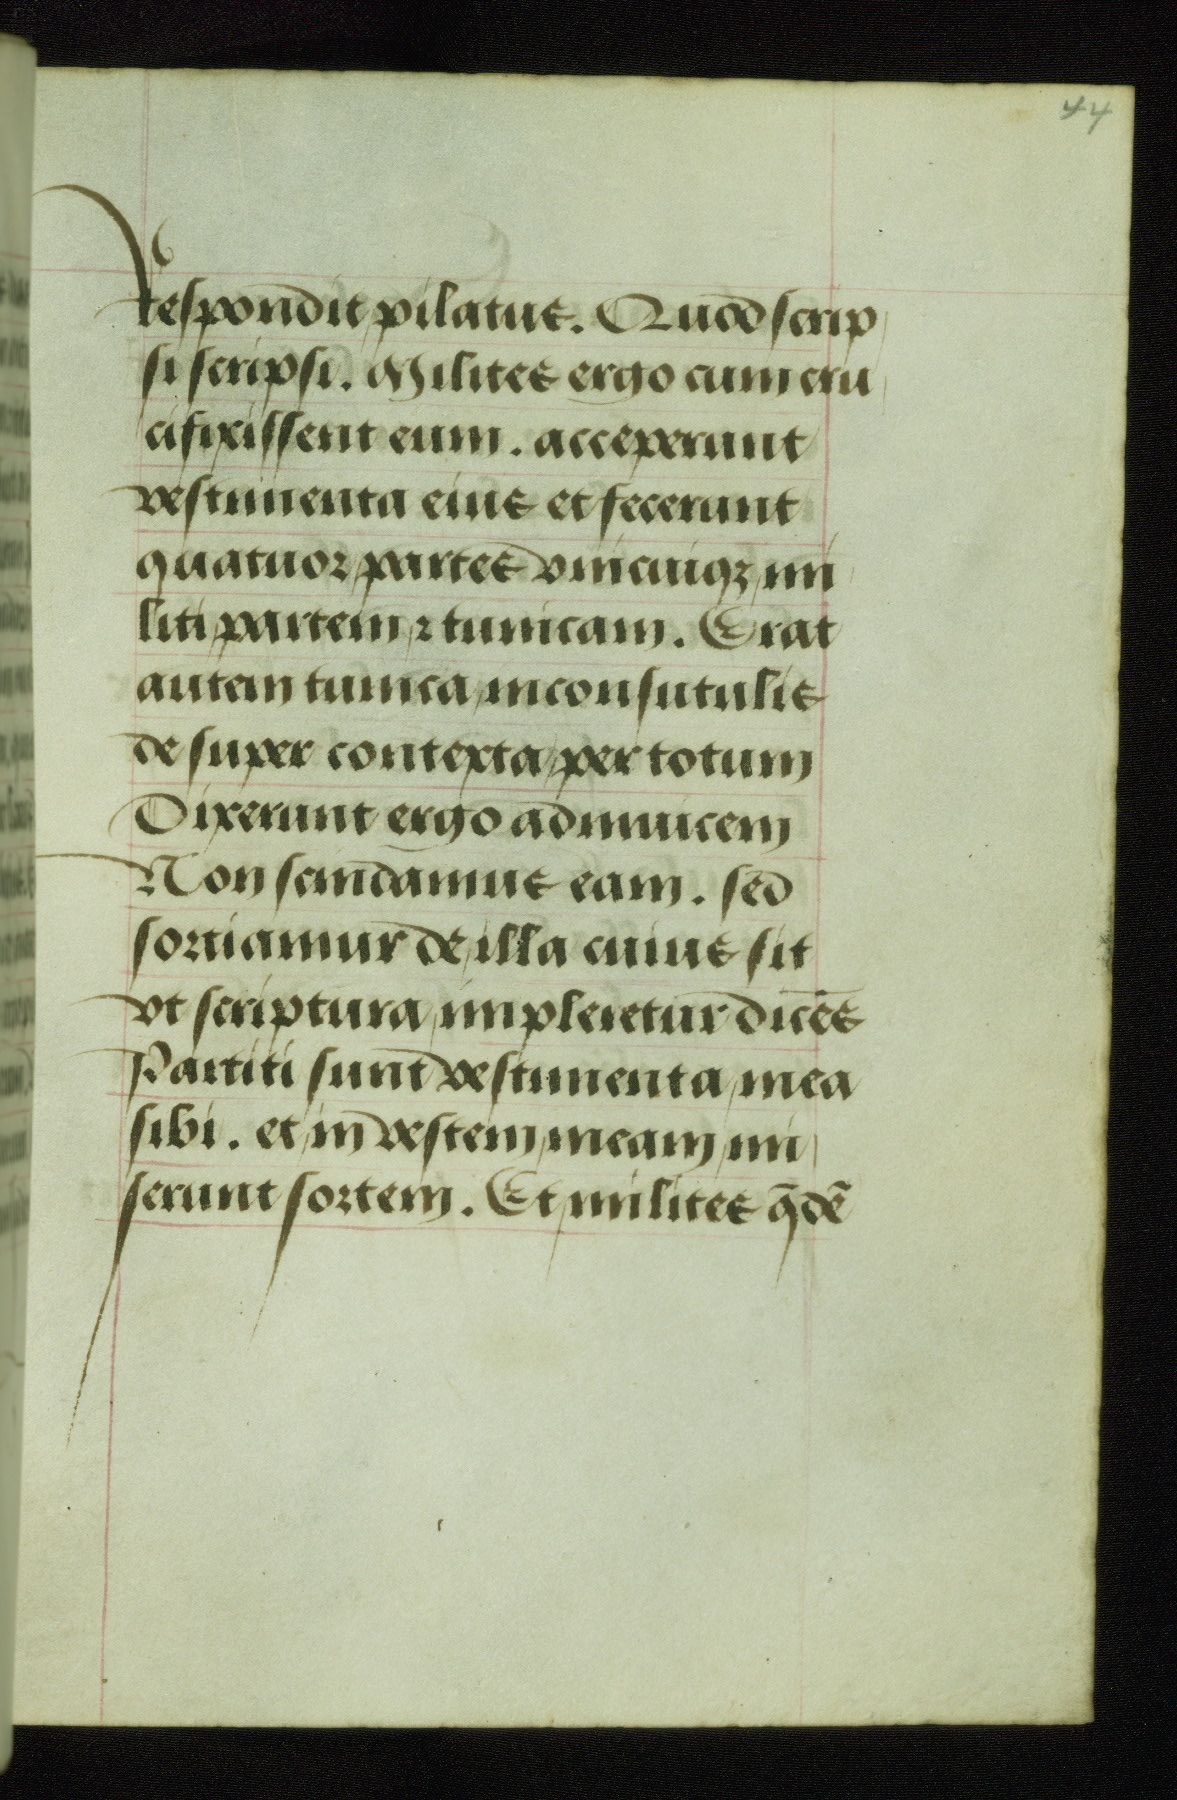 44
Respondit pilatus. Quod scrip
si scripsi. Milites ergo cum cru
cifixissent eum. acceperunt
vestimenta eius et fecerunt
quatuor partes vnicuiqꝫ mi
liti partem ⁊ tunicam. Erat
autem tunica inconsutulis
de super contexta per totum
Dixerunt ergo adinuicem
Non scindamus eam. sed
sortiamur de illa cuius sit
vt scriptura impleretur dicēs
Partiti sunt vestimenta mea
sibi. et in vestem meam mi
serunt sortem. Et milites q̄dē